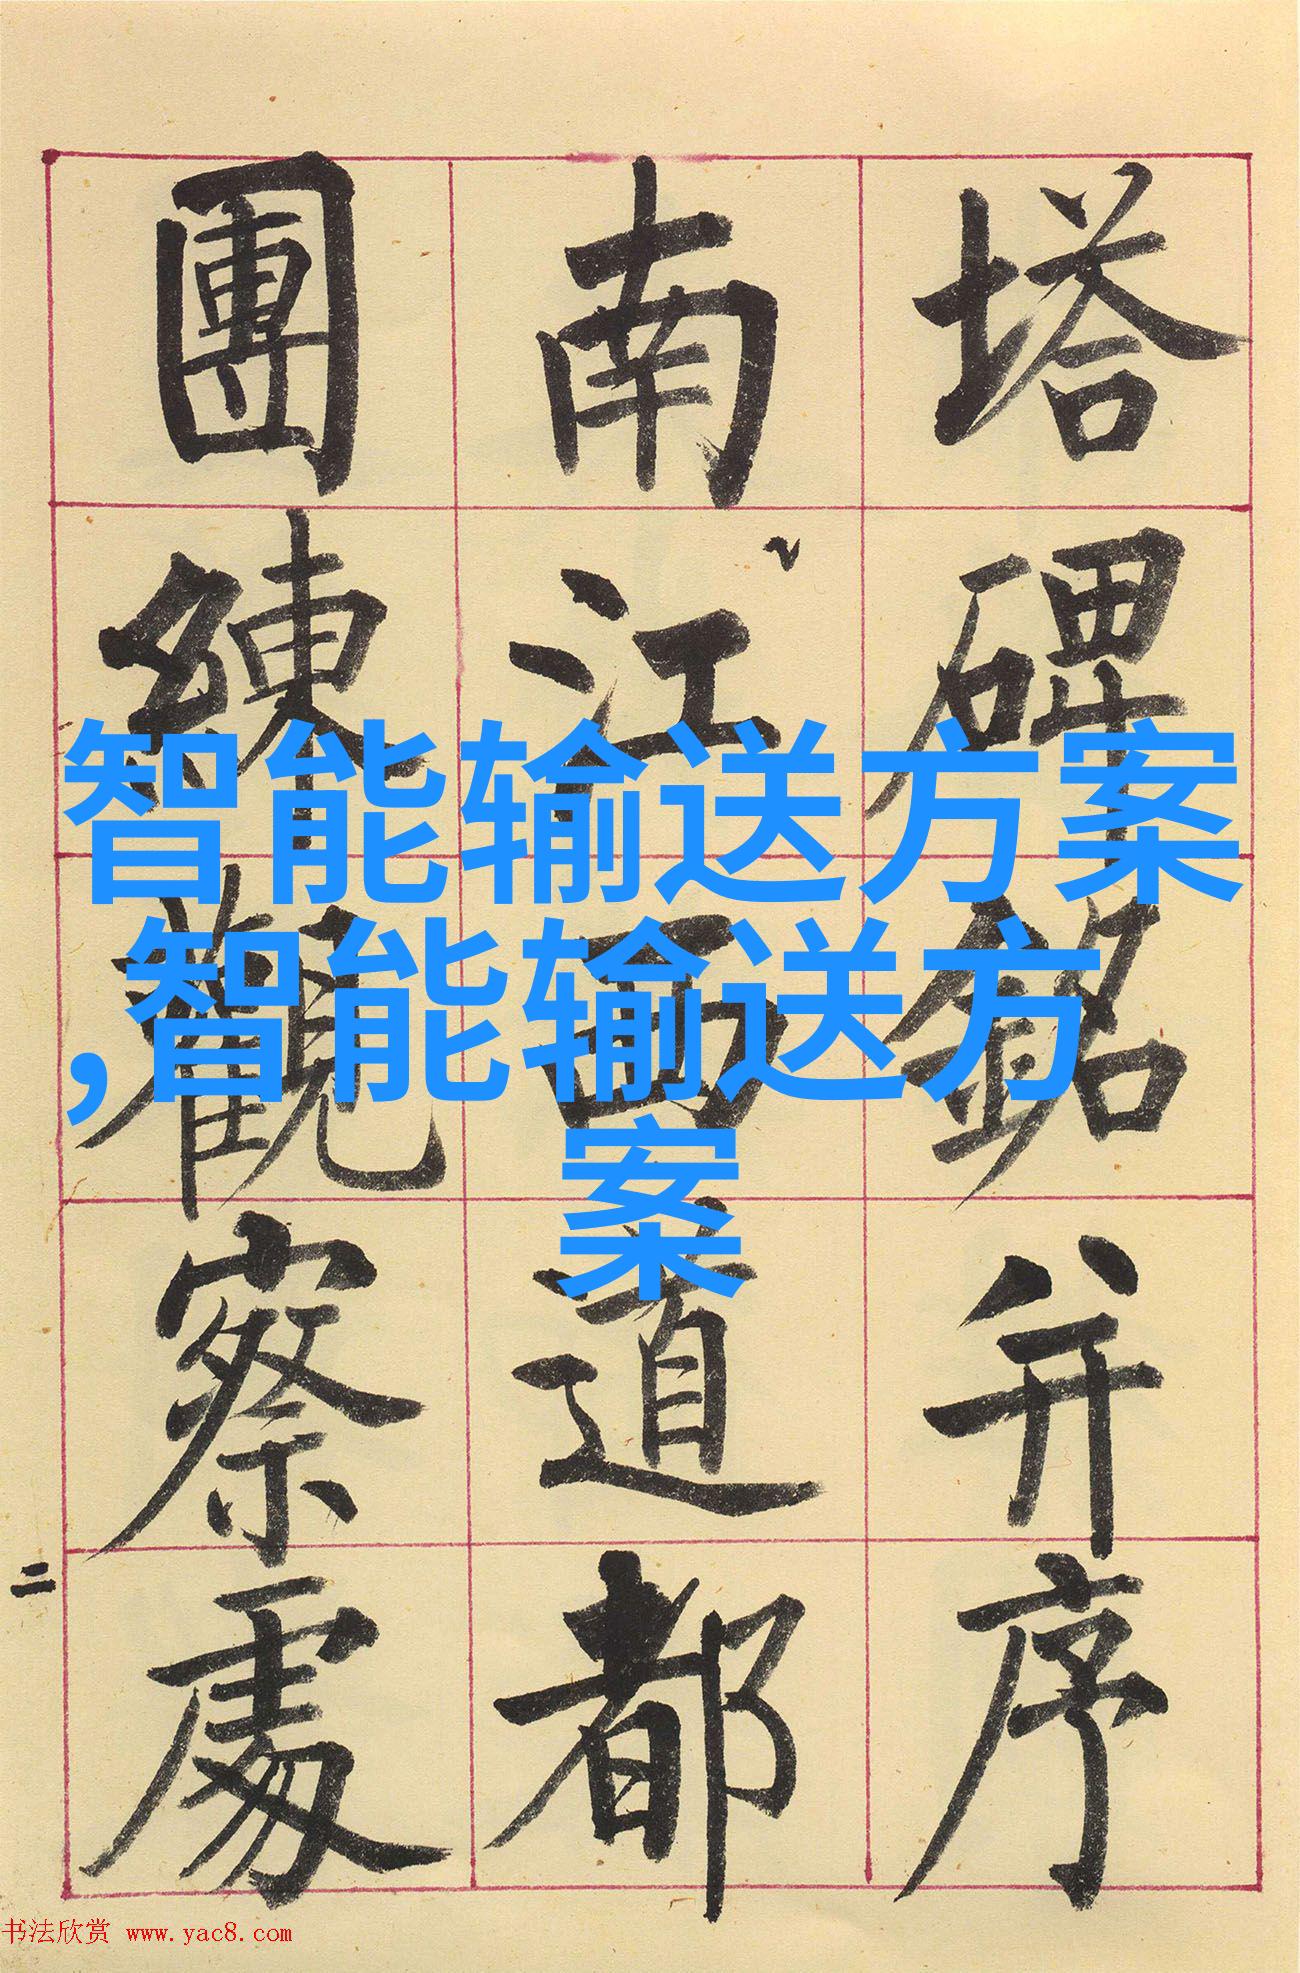 塔碑銘并序
南江西道都
團練觀察處
二
智能输送方案
,智能输送方
案
书法欣赏 www.yac8.com